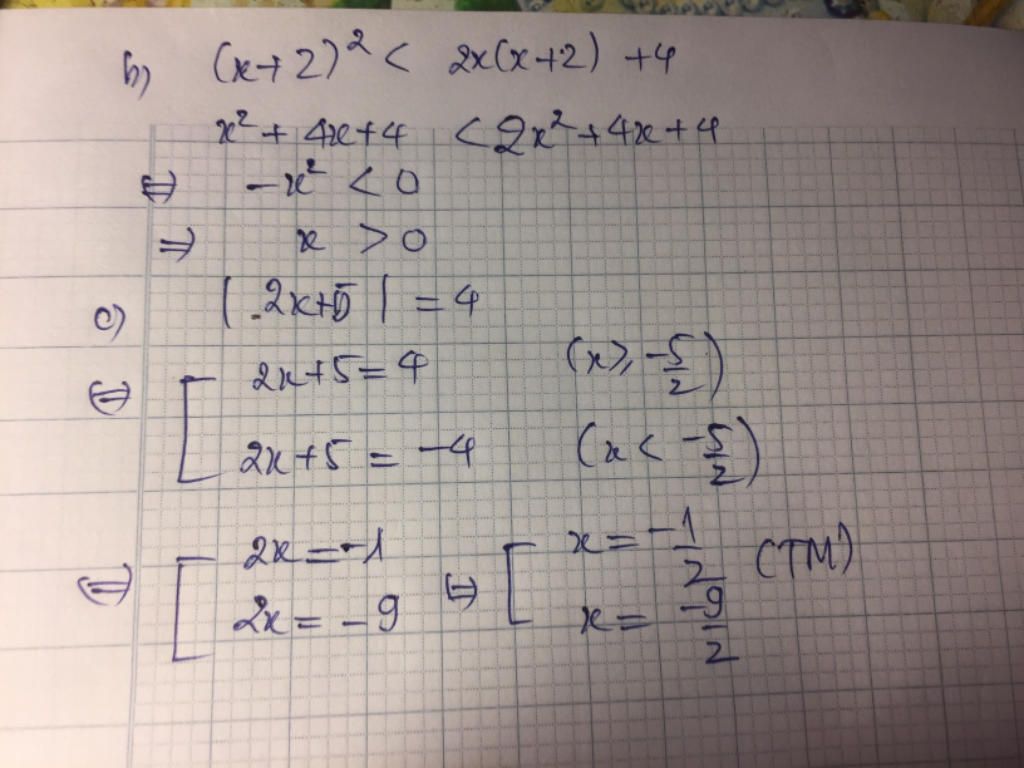 b) (x+2)² < 2x(x+2) +4
x² + 4x+4 < 2x² + 4x + 4
⇔ -x² < 0
⇒ x > 0
c) | 2x+5 | = 4
⇔ [ 2x+5 = 4 (x ≥ -5/2)
2x+5 = -4 (x < -5/2)
⇔ [ 2x = -1 ⇔ [ x = -1/2 (TM)
2x = -9 x = -9/2